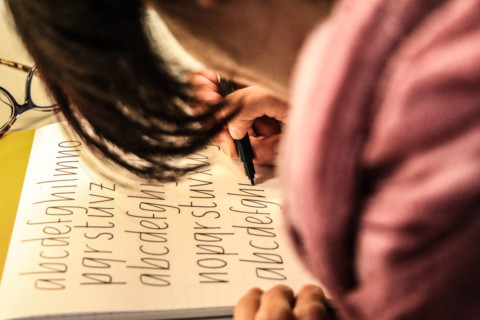 abcdefghilmno
pqrstuvz
abcdefghi
nopqrstuvz
abcdefgh